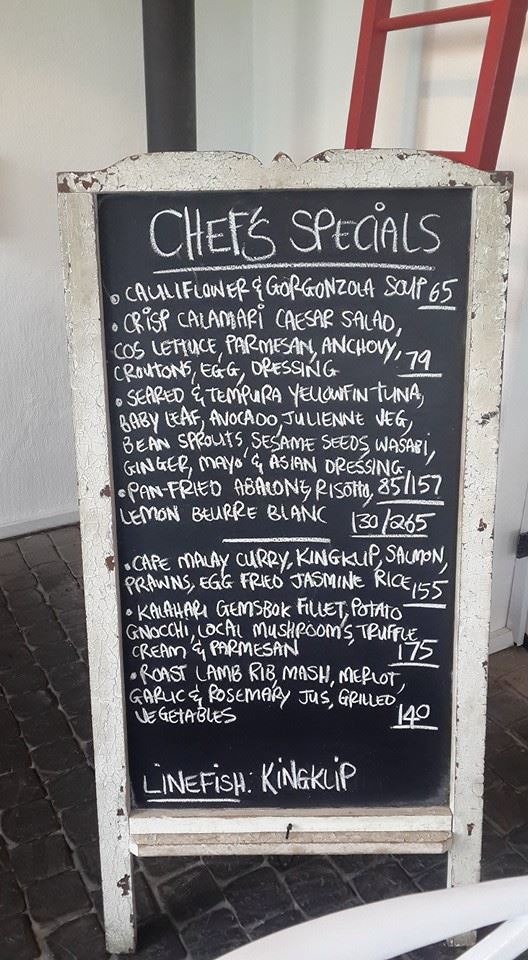 CHEF'S SPECIALS
• CAULIFLOWER & GORGONZOLA SOUP 65
• CRISP CALAMARI CAESAR SALAD,
COS LETTUCE, PARMESAN, ANCHOVY,
CROUTONS, EGG, DRESSING 79
• SEARED & TEMPURA YELLOWFIN TUNA,
BABY LEAF, AVOCADO, JULIENNE VEG,
BEAN SPROUTS, SESAME SEEDS, WASABI,
GINGER, MAYO & ASIAN DRESSING
• PAN-FRIED ABALONE, RISOTTO, 85/157
LEMON BEURRE BLANC 130/265
• CAPE MALAY CURRY, KINGKLIP, SALMON,
PRAWNS, EGG FRIED JASMINE RICE 155
• KALAHARI GEMSBOK FILLET, POTATO
GNOCCHI, LOCAL MUSHROOMS, TRUFFLE
CREAM & PARMESAN 175
• ROAST LAMB RIB, MASH, MERLOT,
GARLIC & ROSEMARY JUS, GRILLED
VEGETABLES 140
LINEFISH: KINGKLIP